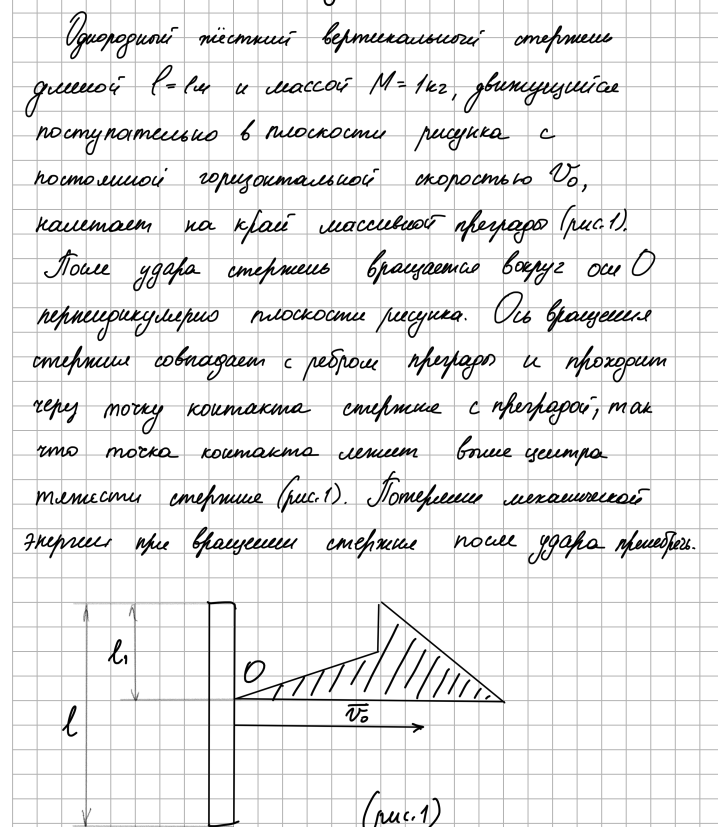 Однородный жёсткий вертикальный стержень
длиной l = 1м и массой M = 1кг, движущийся
поступательно в плоскости рисунка с
постоянной горизонтальной скоростью V₀,
налетает на край массивной преграды (рис.1).
После удара стержень вращается вокруг оси О
перпендикулярно плоскости рисунка. Ось вращения
стержня совпадает с ребром преграды и проходит
через точку контакта стержня с преградой, так
что точка контакта лежит выше центра
тяжести стержня (рис.1). Потерями механической
энергии при вращении стержня после удара пренебречь.
l₁
O
l
v₀
(рис.1)